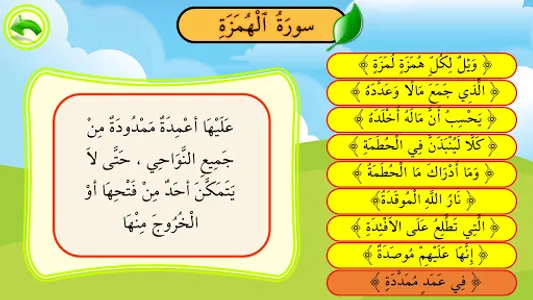 سورَةُ ٱلْهُمَزَةِ
﴿ وَيْلٌ لِكُلِّ هُمَزَةٍ لُمَزَةٍ ﴾
﴿ الَّذِي جَمَعَ مَالًا وَعَدَّدَهُ ﴾
﴿ يَحْسِبُ أَنَّ مَالَهُ أَخْلَدَهُ ﴾
﴿ كَلَّا لَيُنْبَذَنَّ فِي الْحُطَمَةِ ﴾
﴿ وَمَا أَدْرَاكَ مَا الْحُطَمَةُ ﴾
﴿ نَارُ اللَّهِ الْمُوقَدَةُ ﴾
﴿ الَّتِي تَطَّلِعُ عَلَى الْأَفْئِدَةِ ﴾
﴿ إِنَّهَا عَلَيْهِمْ مُوصَدَةٌ ﴾
﴿ فِي عَمَدٍ مُمَدَّدَةٍ ﴾
عَلَيْهَا أَعْمِدَةٌ مَمْدُودَةٌ مِنْ
جَمِيعِ النَّوَاحِي ، حَتَّى لاَ
يَتَمَكَّنَ أَحَدٌ مِنْ فَتْحِهَا أَوْ
الْخُرُوجَ مِنْهَا